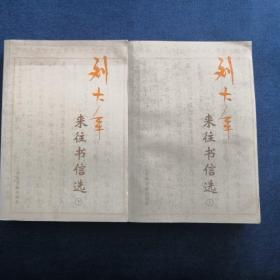 刘大年
来往书信选
下
刘大年
来往书信选
上